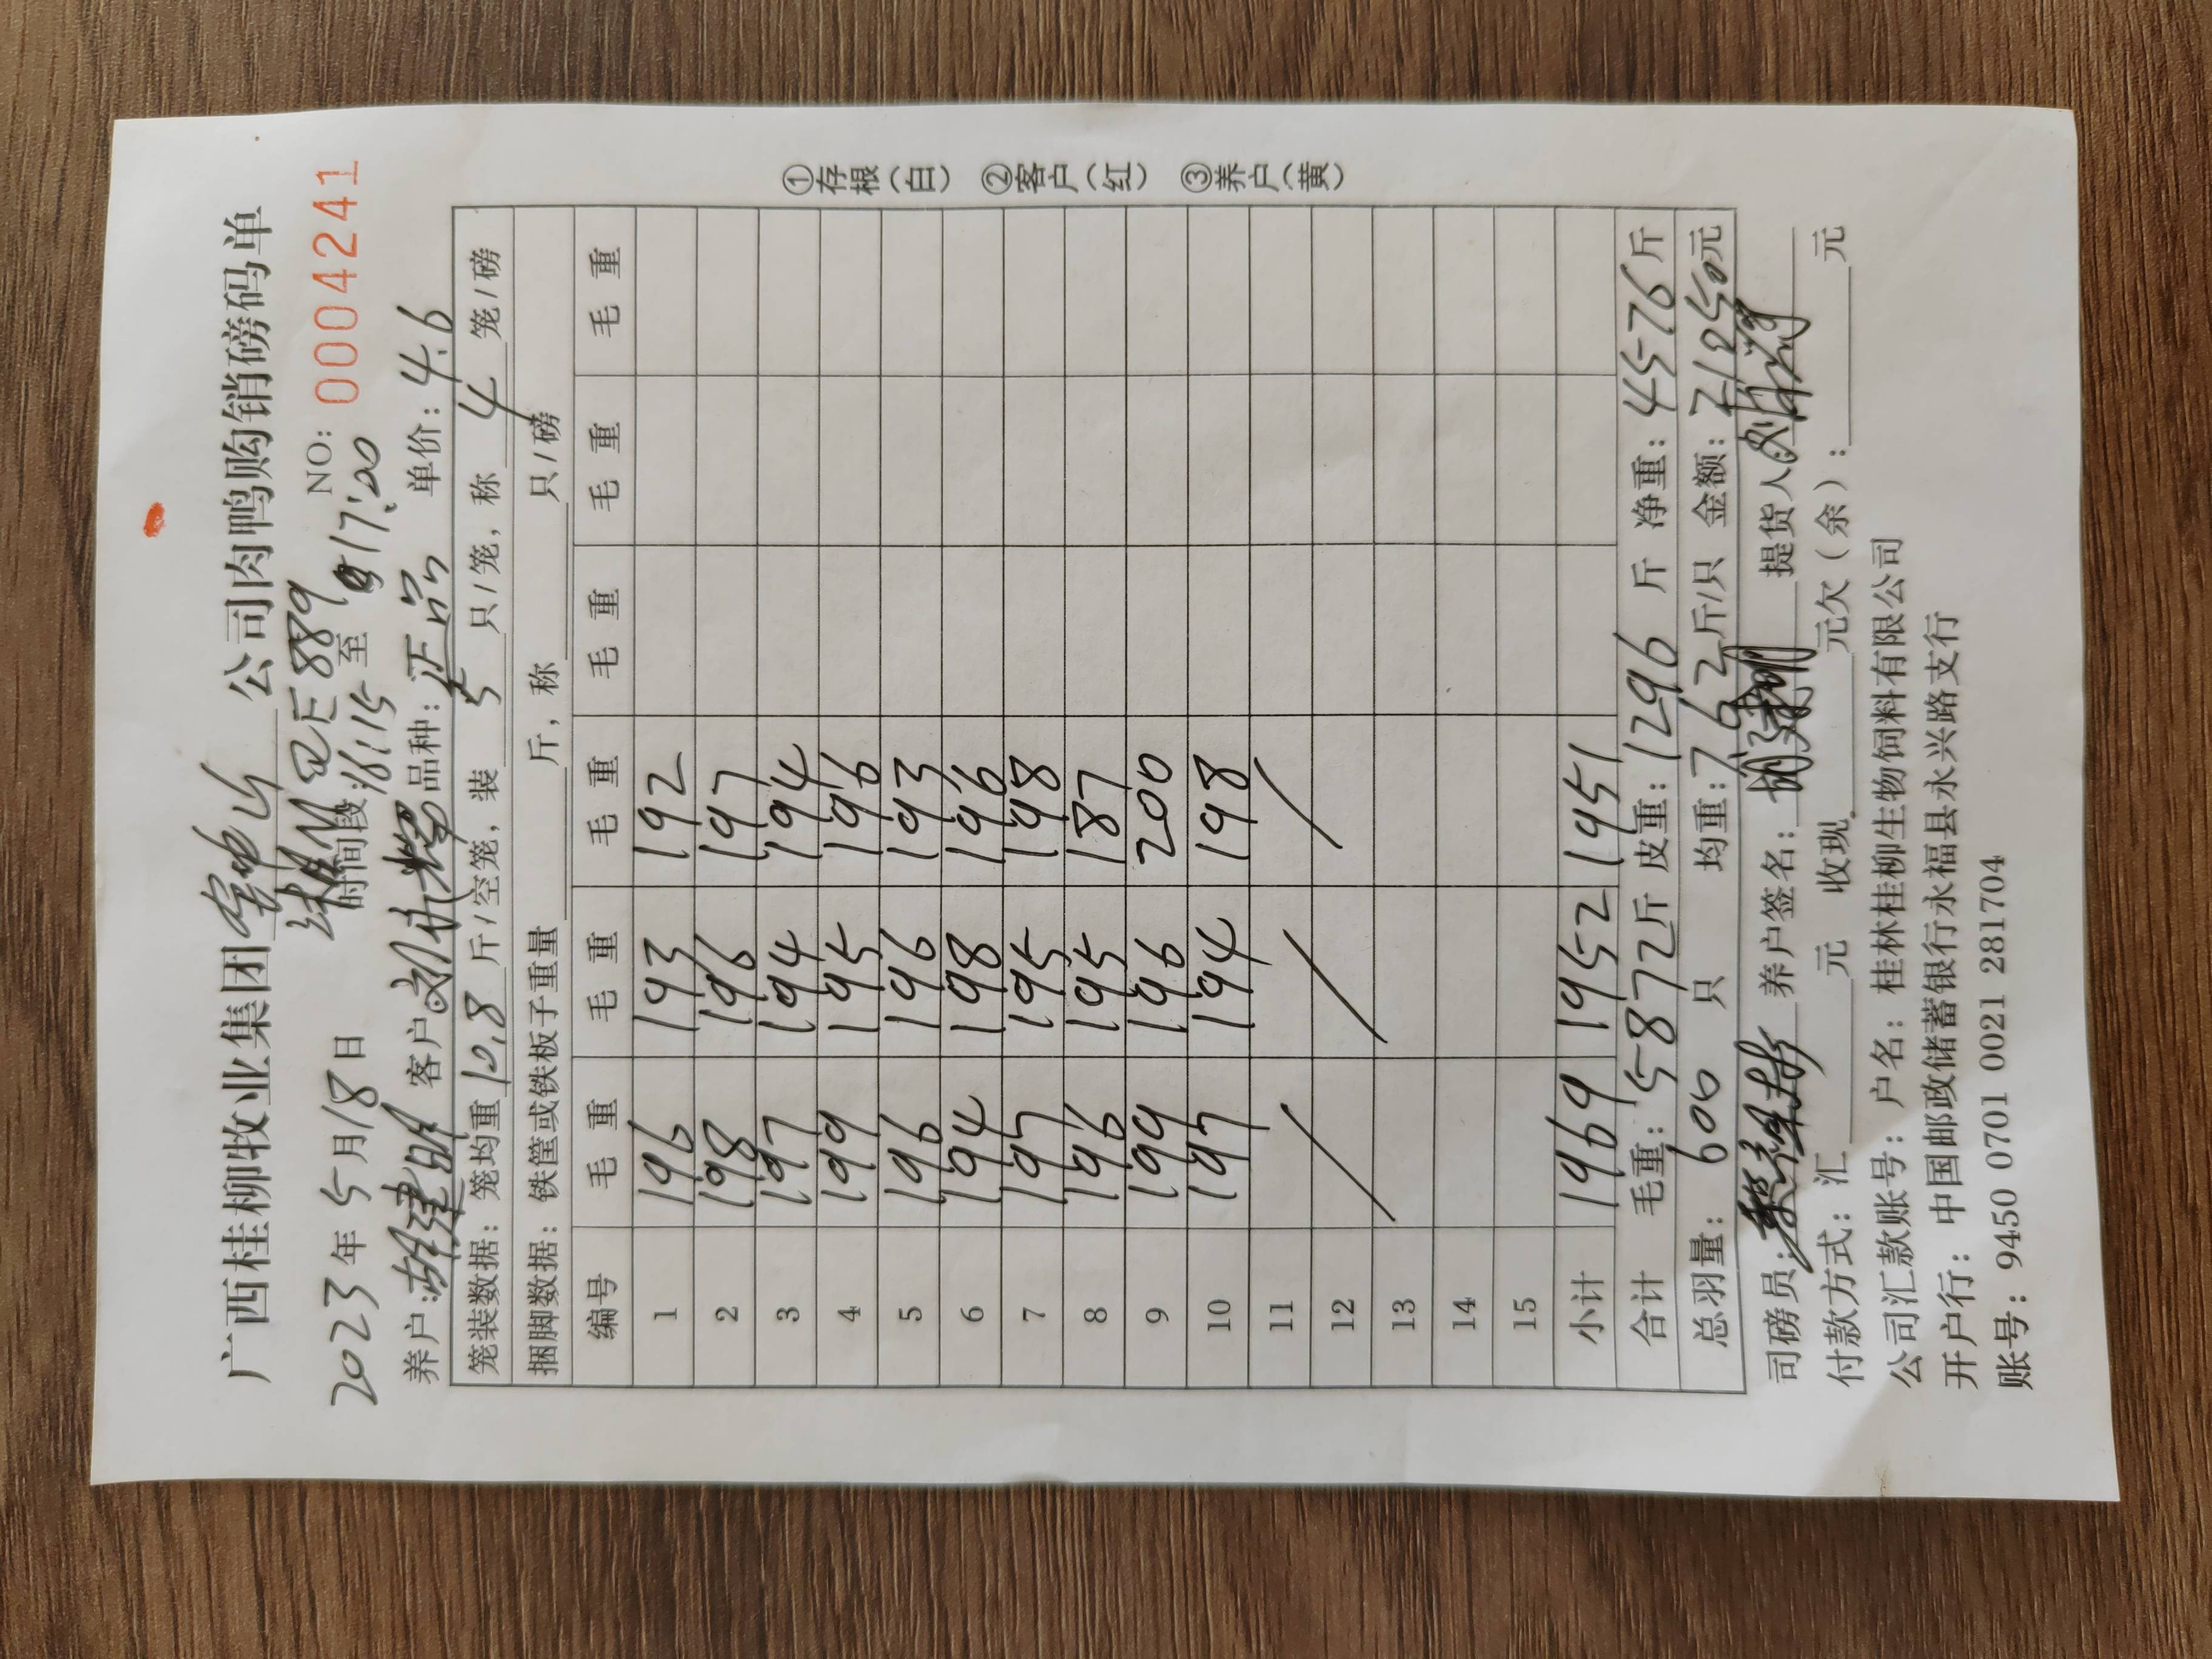 广西桂柳牧业集团 公司肉鸭购销磅码单
NO: 0004241
2023年5月18日 时间段:16:15至17:00
养户:胡建明 客户 品种:正品 单价:4.6
笼装数据:笼均重10.8斤/空笼,装5只/笼,称4笼/磅
捆脚数据:铁筐或铁板子重量 斤,称 只/磅
编号 毛重 毛重 毛重 毛重 毛重 毛重
1 196 193 192
2 198 196 197
3 197 194 194
4 199 195 196
5 196 196 193
6 194 198 196
7 197 195 198
8 196 195 187
9 199 196 200
10 197 194 198
11 / / /
12
13
14
15
小计 1969 1952 1951
合计 毛重:5872斤 皮重:1296斤 净重:4576斤
总羽量:600只 均重:7.62斤/只 金额:21050元
司磅员: 养户签名:胡建明 提货人:
付款方式:汇 元 收现 元欠(余): 元
公司汇款账号:户名:桂林桂柳生物饲料有限公司
开户行:中国邮政储蓄银行永福县永兴路支行
账号:9450 0701 0021 281704
①存根(白) ②客户(红) ③养户(黄)